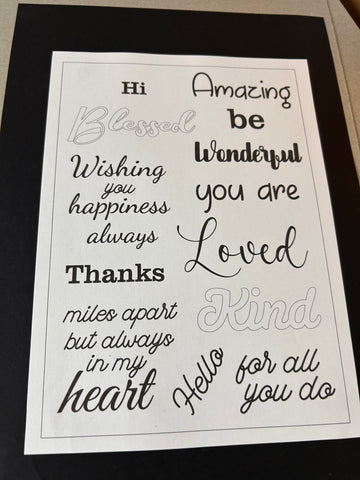 Hi
Amazing
Blessed
be
Wonderful
Wishing
you
happiness
always
you are
Loved
Thanks
Kind
miles apart
but always
in my
heart
Hello
for all
you do